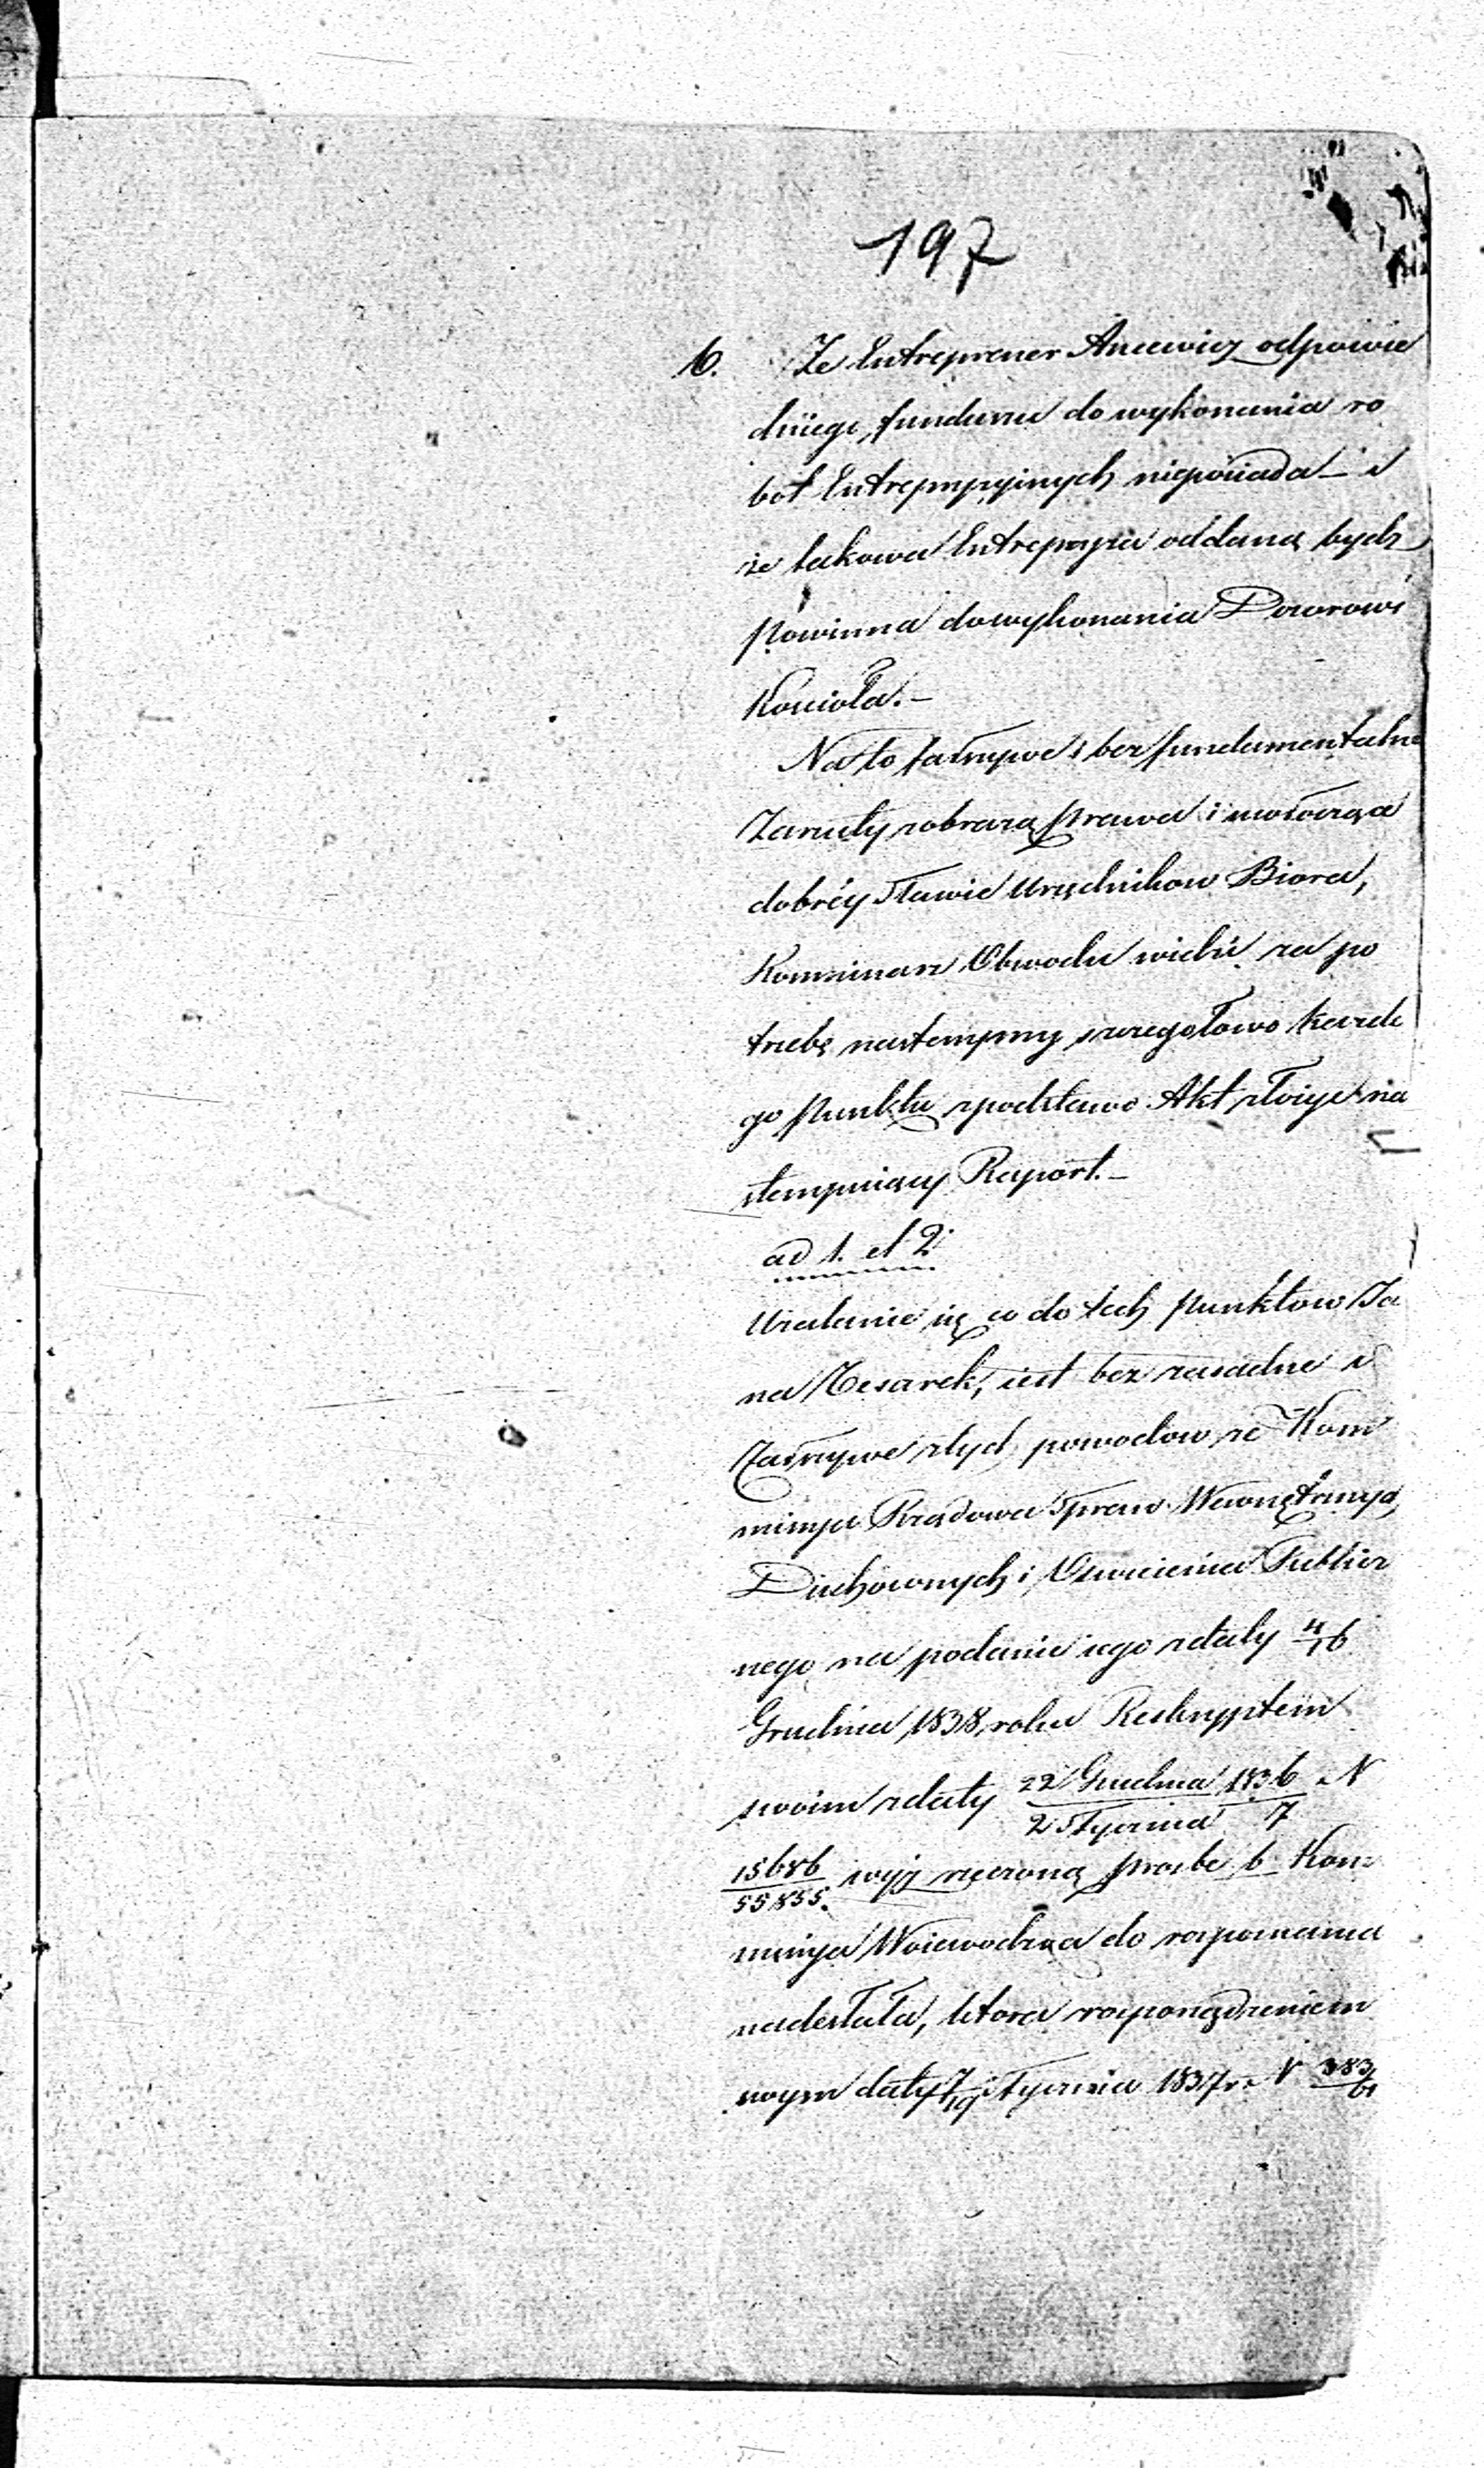 197
6. Ze Entreprener Ancewicz odpowie
dniego funduszu do wykonania ro
bot Entrepryzyinych nieposiada – i
że takowa Entrepryza oddana bydz
powinna do wykonania Dozorowi
Kościoła. –
Na to fałszywe i bez fundamentalne
Zarzuty z obrazą prawa i
dobréy Sławie Urzędnikow Biora,
Kommissarz Obwodu widzi za po
trzebę nastempny szczegołowo każde
go punktu z podstawo Akt złożyć na
stempuiący Raport. –
ad 1. et 2.
Użalanie się co do tych punktow Ja
na Cesarek, iest bez zasadne i
fałszywe z tych powodow że Kom
missya Rządowa Spraw Wewnętrznych,
Duchownych i Oświecenia Publicz
nego na podanie iego z daty 4/16
Grudnia 1838 roku Reskryptem
swoim z daty 22 Grudnia 1836 / 2 Stycznia 7 N
15686/55855. wyż rzeczoną prosbe b. Kom
missya Woiewodzka do rozpoznania
nadesłała, ktora rozporządzeniem
swym daty 7/19 Stycznia 1837 r. N 383/61